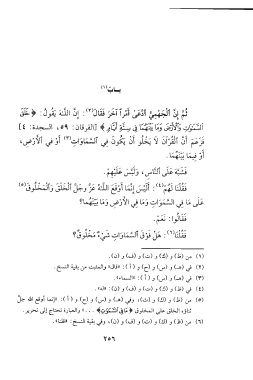 بـاب(١)
ثُمَّ إِنَّ الْجَهْمِيَّ ادَّعَىٰ أَمْرًا آخَرَ فَقَالَ(٢): إِنَّ اللَّهَ يَقُولُ: ﴿خَلَقَ
السَّمَٰوَٰتِ وَٱلْأَرْضَ وَمَا بَيْنَهُمَا فِي سِتَّةِ أَيَّامٍ﴾ [الفرقان: ٥٩، السجدة: ٤]
فَزَعَمَ أَنَّ الْقُرْآنَ لَا يَخْلُو أَنْ يَكُونَ فِي السَّمَاوَاتِ(٣) أَوْ فِي الْأَرْضِ،
أَوْ فِيمَا بَيْنَهُمَا.
فَشَبَّهَ عَلَى النَّاسِ، وَلَبَّسَ عَلَيْهِمْ.
فَقُلْنَا لَهُمْ(٤): أَلَيْسَ إِنَّمَا أَوْقَعَ اللَّهُ عَزَّ وَجَلَّ الْخَلْقَ وَالْمَخْلُوقَ(٥)
عَلَى مَا فِي السَّمَاوَاتِ وَمَا فِي الْأَرْضِ وَمَا بَيْنَهُمَا؟
فَقَالُوا: نَعَمْ.
فَقُلْنَا(٦): هَلْ فَوْقَ السَّمَاوَاتِ شَيْءٌ مَخْلُوقٌ؟
(١) من (ظ) و (ك) و (ت) و (ف) و (ن).
(٢) في (هـ) و (س) و (ح) و (أ): «قال» والمثبت من بقية النسخ.
(٣) في (هـ) و (س) و (أ): «السماء».
(٤) في (ظ) و (ك) و (ت) و (ف) و (ن): «له».
(٥) من (ظ) و (ك) و (ت)، وفي (هـ) و (س) و (ح) و (أ): «إنما أوقع الله جلّ
ثناؤه الخلق على المخلوق ﴿مَا فِي السَّمَٰوَٰتِ﴾ ...» والعبارة تحتاج إلى تحرير.
(٦) من (ظ) و (ك) و (ت) و (ف) و (ن)، وفي بقية النسخ: «قلنا».
٢٥٦